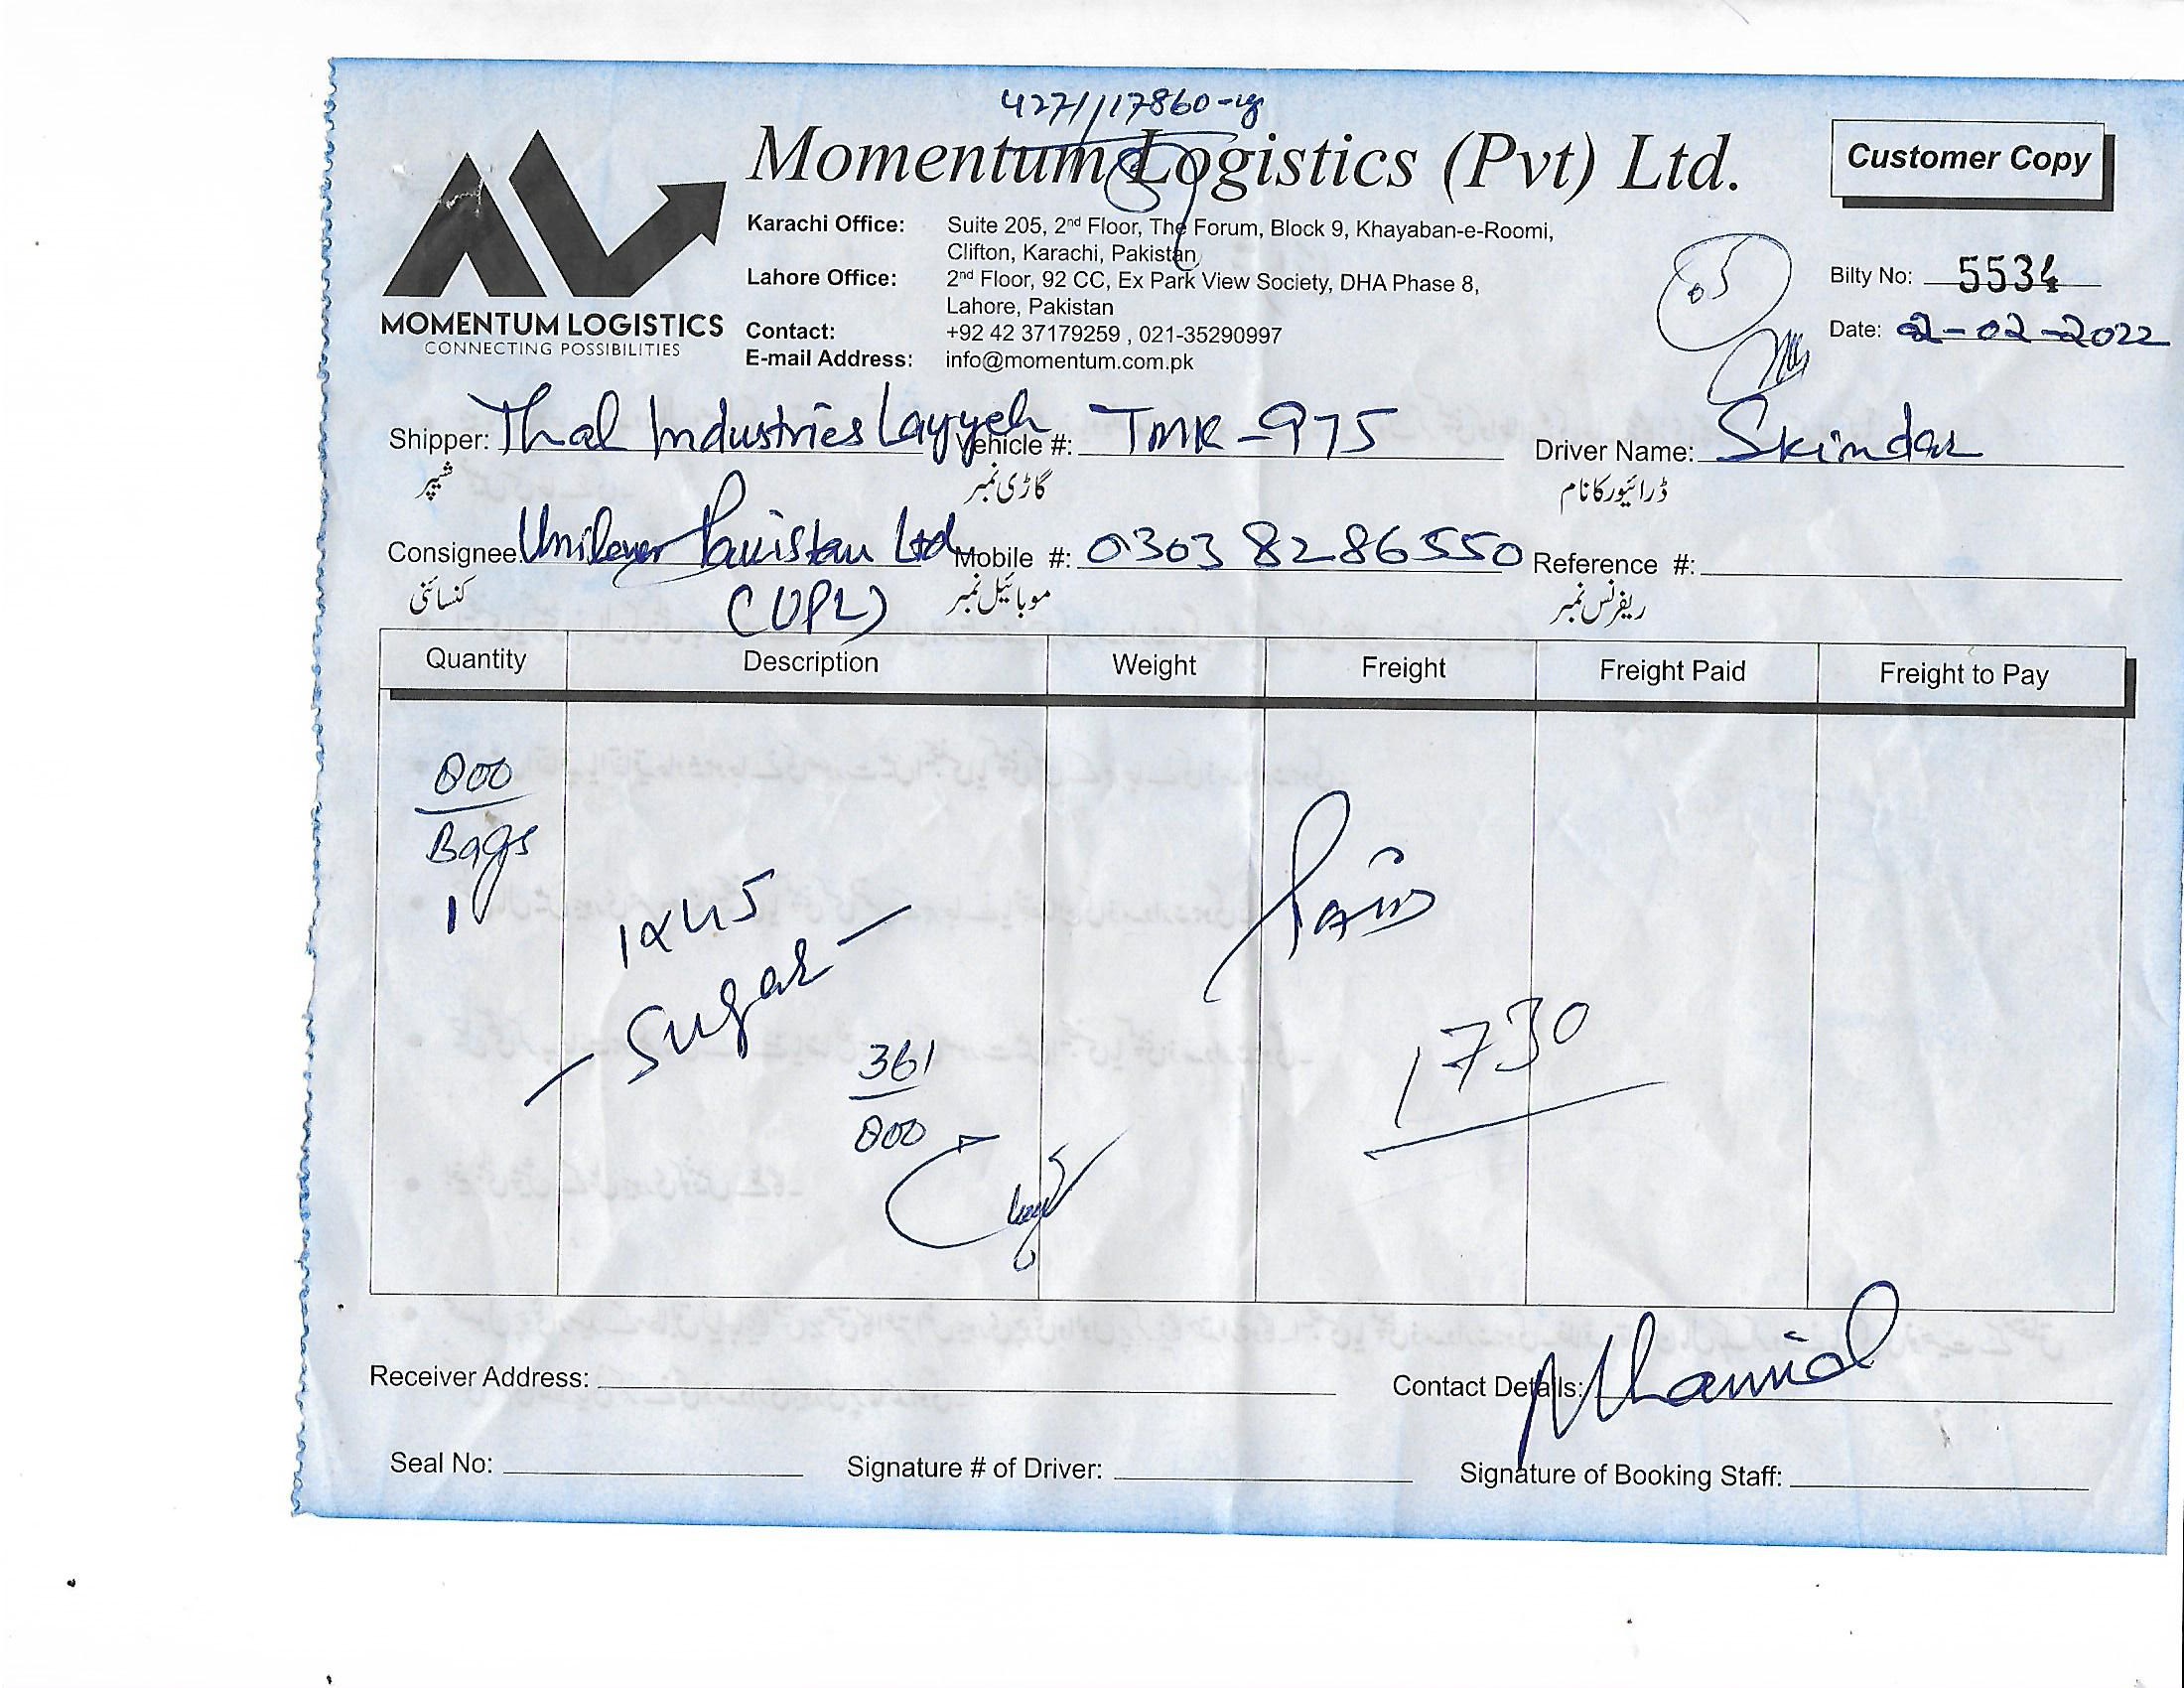 427/117860-
Momentum Logistics (Pvt) Ltd.
Customer Copy
MOMENTUM LOGISTICS
CONNECTING POSSIBILITIES
Karachi Office: Suite 205, 2nd Floor, The Forum, Block 9, Khayaban-e-Roomi,
Clifton, Karachi, Pakistan
Lahore Office: 2nd Floor, 92 CC, Ex Park View Society, DHA Phase 8,
Lahore, Pakistan
Contact: +92 42 37179259 , 021-35290997
E-mail Address: info@momentum.com.pk
05
Bilty No: 5534
Date: 2-02-2022
Shipper: Thal Industries Layyeh Vehicle #: TMK-975 Driver Name: Skindar
شیپر گاڑی نمبر ڈرائیور کا نام
Consignee: Unilever Pakistan Ltd Mobile #: 0303 8286550 Reference #:
(UPL)
کنسائنی موبائیل نمبر ریفرنس نمبر
Quantity Description Weight Freight Freight Paid Freight to Pay
800
Bags
1x45
Sugar
Paid
1730
361
800
Receiver Address: Contact Details:
Seal No: Signature # of Driver: Signature of Booking Staff: